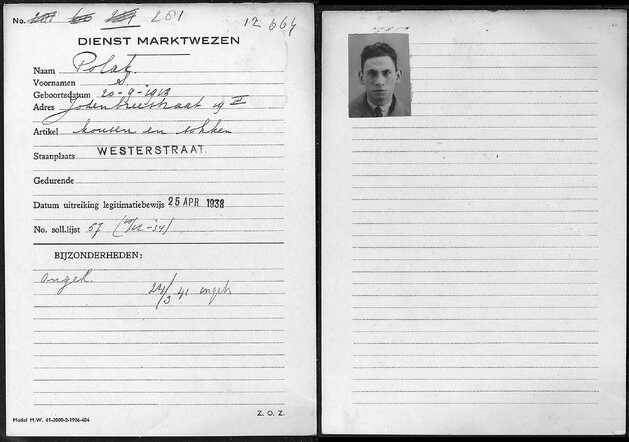 No. 201 12664
DIENST MARKTWEZEN
Naam Polak
Voornamen S.
Geboortedatum 20-9-1913
Adres Jodenbreestraat 19 II
Artikel kousen en sokken
Staanplaats WESTERSTRAAT.
Gedurende
Datum uitreiking legitimatiebewijs 25 APR. 1938
No. soll.lijst 57
BIJZONDERHEDEN:
ongeh.
24/3 41 ongeh
Model M.W. 41-2000-2-1936-604
Z. O. Z.